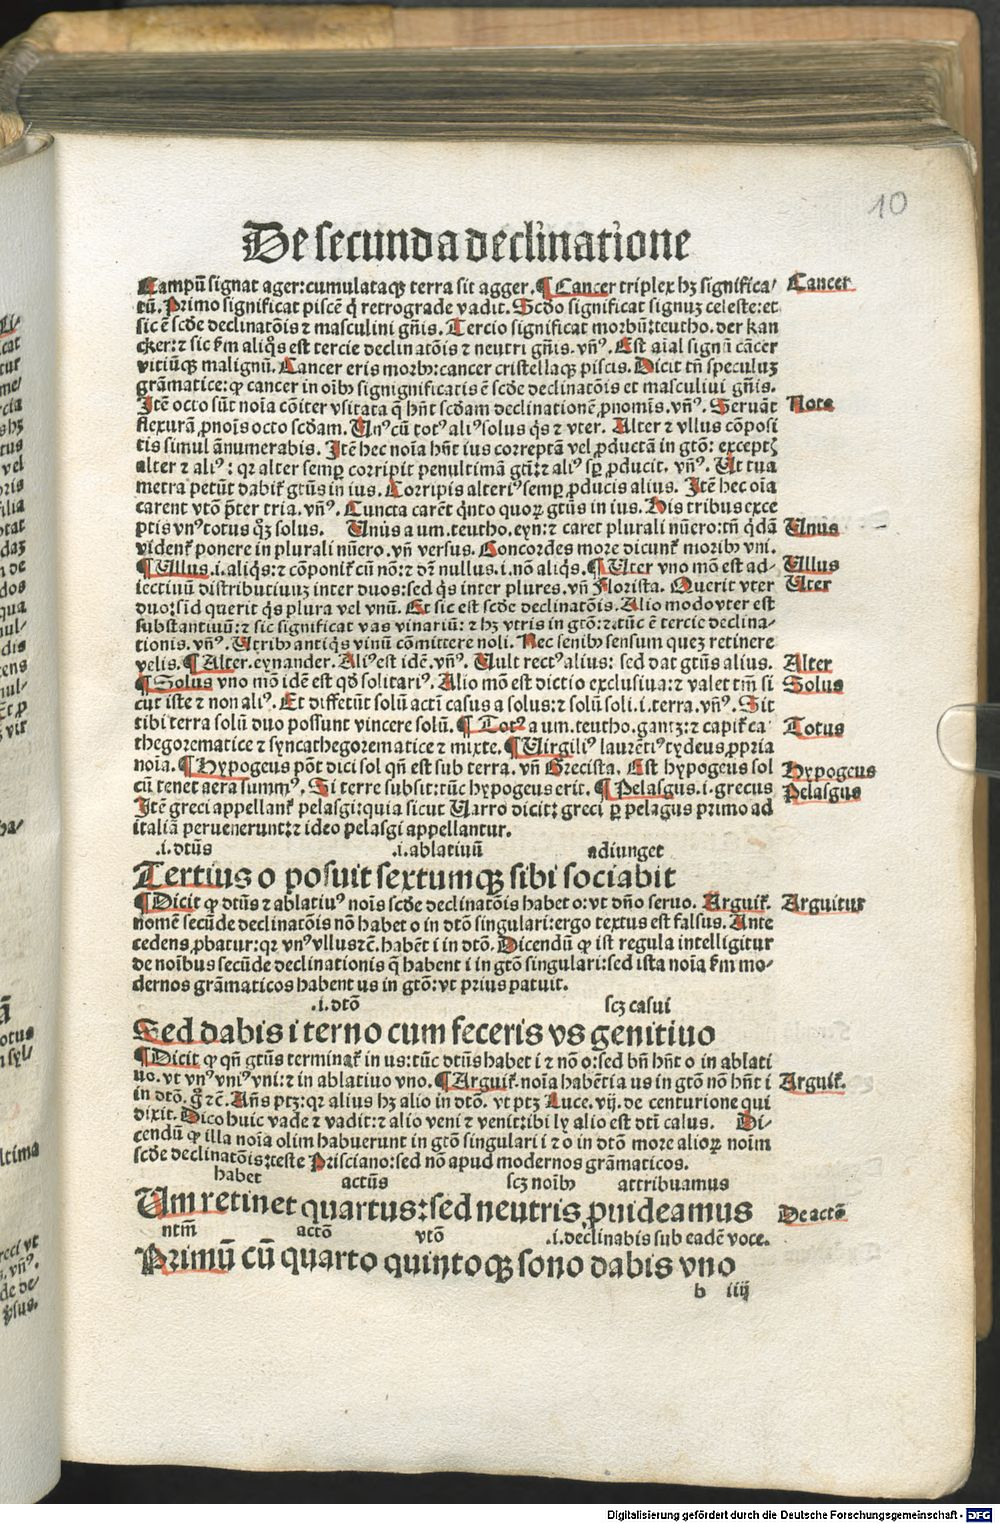 10
De secunda declinatione
Campū signat ager: cumulataqꝫ terra sit agger. ¶ Cancer triplex hꝫ significa/
Cancer
tū. Primo significat piscē q̇ retrograde vadit. Scdo significat signuꝫ celeste: et
sic ē scde declinatōis ⁊ masculini gn̄is. Tercio significat morbū: teutho. der kan
cker: ⁊ sic s̄m aliq̇s est tercie declinatōis ⁊ neutri gn̄is. vn̄ꝰ. Est aīal signū cācer
vitiūqꝫ malignū. Cancer eris morbꝰ: cancer cristellaqꝫ piscis. Dicit tn̄ speculuꝫ
grāmatice: ꝙ cancer in oībꝰ signignificatis ē scde declinatōis et masculiui gn̄is.
Itē octo sūt noīa cōiter vsitata q̄ hn̄t scdam declinationē ꝓnomīs. vn̄ꝰ. Seruāt
Nota
flexurā ꝓnoīs octo scdam. Unꝰ cū totꝰ aliꝰ solus q̇s ⁊ vter. Alter ⁊ vllus cōposi
tis simul ānumerabis. Itē hec noīa hn̄t ius correptā vel ꝓductā in gtō: exceptꝭ
alter ⁊ aliꝰ: qꝛ alter semꝑ corripit penultimā gtī: ⁊ aliꝰ sꝑ ꝓducit. vn̄ꝰ. Ut tua
metra petūt dabiẜ gtūs in ius. Corripis alteriꝰ semꝑ ꝓducis alius. Itē hec oīa
carent vtō p̄ter tria. vn̄ꝰ. Cuncta carēt q̇nto quoꝝ gtūs in ius. His tribus exce
ptis vnꝰ totus qꝫ solus. Unus a um. teutho. eyn: ⁊ caret plurali nūero: tn̄ q̇dā
Unus
videnẜ ponere in plurali nūero. vn̄ versus. Concordes more dicunẜ moribꝰ vni.
¶ Ullus .i. aliq̇s: ⁊ cōponiẜ cū nō: ⁊ dr̄ nullus .i. nō aliq̇s. ¶ Uter vno mō est ad-
Ullus
iectiuū distributiuuꝫ inter duos: sed q̇s inter plures. vn̄ Florista. Querit vter
Uter
duo: sīd querit q̇s plura vel vnū. Et sic est scde declinatōis. Alio modo vter est
substantiuū: ⁊ sic significat vas vinariū: ⁊ hꝫ vtris in gtō: ⁊ tūc ē tercie declina-
tionis. vn̄ꝰ. Utribꝰ antiq̇s vinū cōmittere noli. Nec senibꝰ sensum queꝫ retinere
velis. ¶ Alter. eynander. Aliꝰ est idē. vn̄ꝰ. Uult rectꝰ alius: sed dat gtūs alius.
Alter
¶ Solus vno mō idē est qd̄ solitariꝰ. Alio mō est dictio exclusiua: ⁊ valet tm̄ si
Solus
cut iste ⁊ non aliꝰ. Et differūt solū actī casus a solus: ⁊ solū soli .i. terra. vn̄ꝰ. Sit
tibi terra solū duo possunt vincere solū. ¶ Totꝰ a um. teutho. gantꝫ: ⁊ capiẜ ca
Totus
thegorematice ⁊ syncathegorematice ⁊ mixte. ¶ Uirgiliꝰ laurētiꝰ tydeus ꝓpria
noīa. ¶ Hypogeus pōt dici sol qn̄ est sub terra. vn̄ Grecista. Est hypogeus sol
Hypogeus
cū tenet aera summꝰ. Si terre subsit: tūc hypogeus erit. ¶ Pelasgus .i. grecus
Pelasgus
Itē greci appellanẜ pelasgi: quia sicut Uarro dicit: greci ꝑ pelagus primo ad
italiā peruenerunt: ⁊ ideo pelasgi appellantur.
.i. dtūs .i. ablatiuū adiunget
Tertius o posuit sextumqꝫ sibi sociabit
¶ Dicit ꝙ dtūs ⁊ ablatiuꝰ noīs scde declinatōis habet o: vt dn̄o seruo. Arguiẜ.
Arguitur
nomē secūde declinatōis nō habet o in dtō singulari: ergo textus est falsus. Ante
cedens ꝓbatur: qꝛ vnꝰ vllus ⁊c̄. habēt i in dtō. Dicendū ꝙ ist regula intelligitur
de noībus secūde declinationis q̄ habent i in gtō singulari: sed ista noīa s̄m mo-
dernos grāmaticos habent us in gtō: vt prius patuit.
.i. dtō scꝫ casui
Sed dabis i terno cum feceris vs genitiuo
¶ Dicit ꝙ qn̄ gtūs terminaẜ in us: tūc dtūs habet i ⁊ nō o: sed bn̄ hn̄t o in ablati
uo. vt vnꝰ vniꝰ vni: ⁊ in ablatiuo vno. ¶ Arguiẜ. noīa habētia us in gtō nō hn̄t i
Arguiẜ.
in dtō. g̊ ⁊c̄. Ān̄s ptꝫ: qꝛ alius hꝫ alio in dtō. vt ptꝫ Luce. vij. de centurione qui
dixit. Dico huic vade ⁊ vadit: ⁊ alio veni ⁊ venit: ibi ly alio est dtī casus. Di-
cendū ꝙ illa noīa olim habuerunt in gtō singulari i ⁊ o in dtō more alioꝝ noīm
scde declinatōis: teste Prisciano: sed nō apud modernos grāmaticos.
habet actūs scꝫ noībꝰ attribuamus
Um retinet quartus: sed neutris ꝓuideamus
De actō
ntm̄ actō vtō .i. declinabis sub eadē voce.
Primū cū quarto quintoqꝫ sono dabis vno
b iiij
Digitalisierung gefördert durch die Deutsche Forschungsgemeinschaft - DFG